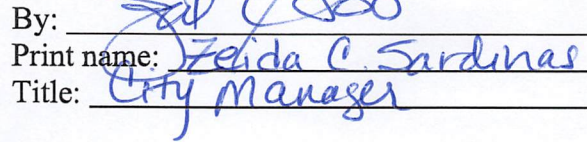 By:
Print name: Zelda C. Sardinas
Title: City Manager